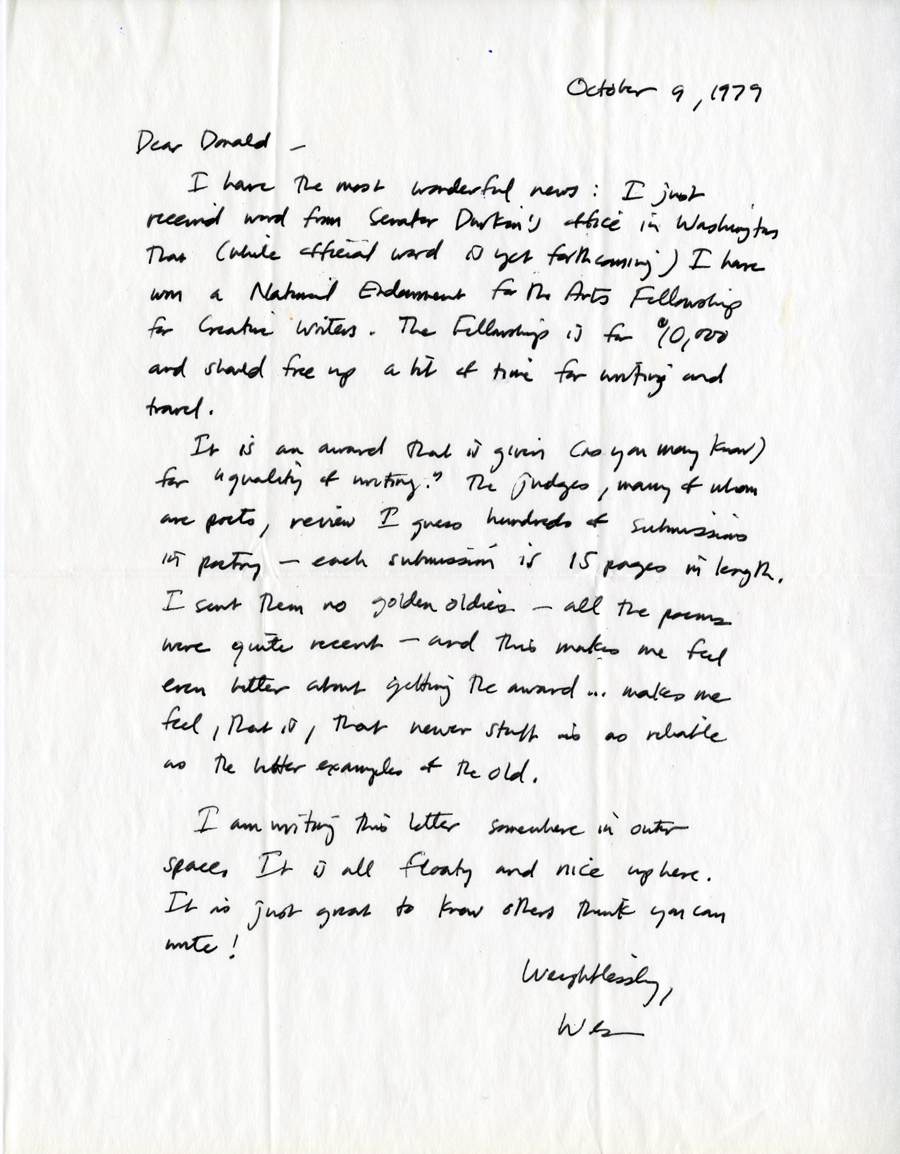 October 9, 1979
Dear Donald –
I have the most wonderful news: I just
received word from Senator Durkin's office in Washington
that (while official word is yet forthcoming) I have
won a National Endowment for the Arts Fellowship
for Creative Writers. The Fellowship is for $10,000
and should free up a bit of time for writing and
travel.
It is an award that is given (as you may know)
for "quality of writing." The judges, many of whom
are poets, review I guess hundreds of submissions
in poetry – each submission is 15 pages in length.
I sent them no golden oldies – all the poems
were quite recent – and this makes me feel
even better about getting the award... makes me
feel, that is, that newer stuff is as reliable
as the better examples of the old.
I am writing this letter somewhere in outer
space. It is all floaty and nice up here.
It is just great to know others think you can
write!
Weightlessly,
Wes